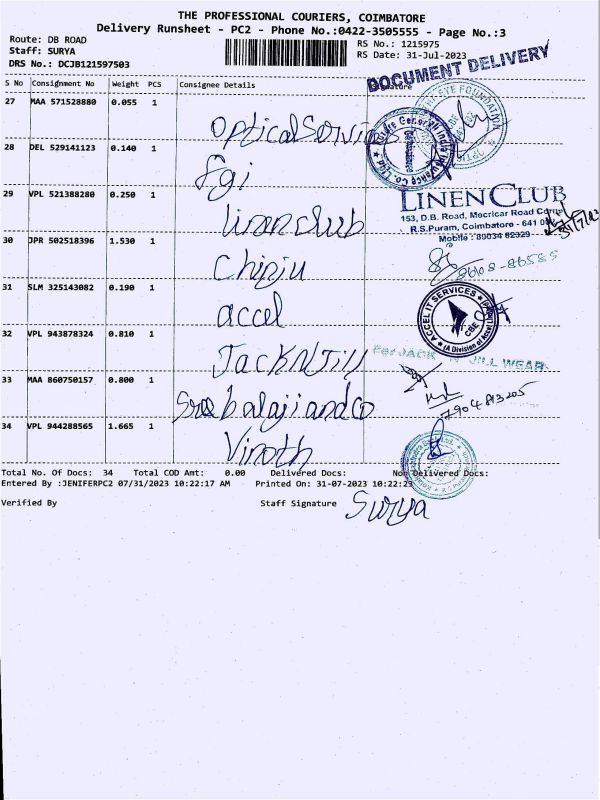 THE PROFESSIONAL COURIERS, COIMBATORE
Delivery Runsheet - PC2 - Phone No.:0422-3505555 - Page No.:3
Route: DB ROAD
Staff: SURYA
DRS No.: DCJB121597503
RS No.: 1215975
RS Date: 31-Jul-2023
DOCUMENT DELIVERY
S No Consignment No Weight PCS Consignee Details Signature
27 MAA 571528880 0.055 1
Optical Services
EYE FOUNDATION
28 DEL 529141123 0.140 1
fgi
Future Generali India Insurance Co. Ltd.
29 VPL 521388280 0.250 1
linan club
LINEN CLUB
153, D.B. Road, Mecricar Road
R.S.Puram, Coimbatore - 641 0
Mobile : 89034 82329
31/7/23
30 JPR 502518396 1.530 1
Chinju
31 SLM 325143082 0.190 1
accel
ACCEL IT SERVICES
CBE
(A Division of Accel
32 VPL 943878324 0.810 1
Jack N Jill
For JACK N JILL WEAR
33 MAA 860750157 0.800 1
Sree balaji and co
7904813205
34 VPL 944288565 1.665 1
Vinoth
Total No. Of Docs: 34 Total COD Amt: 0.00 Delivered Docs: Non Delivered Docs:
Entered By :JENIFERPC2 07/31/2023 10:22:17 AM Printed On: 31-07-2023 10:22:23
Verified By Staff Signature Surya